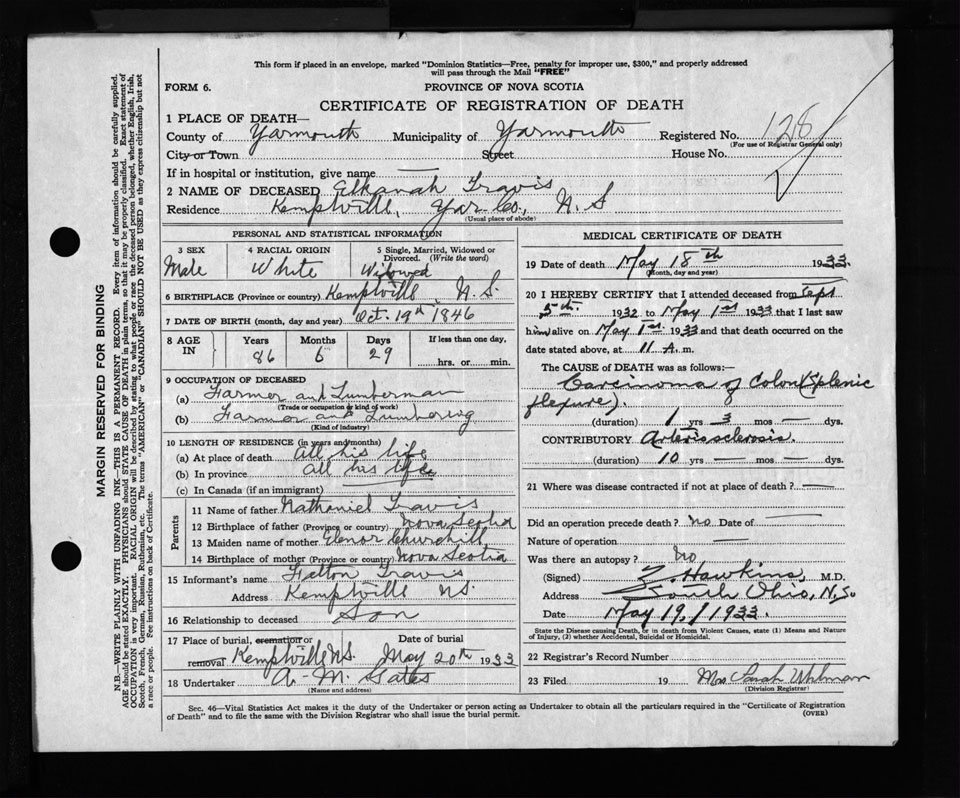 This form if placed in an envelope, marked "Dominion Statistics—Free, penalty for improper use, $300," and properly addressed
will pass through the Mail "FREE"
FORM 6.
PROVINCE OF NOVA SCOTIA
CERTIFICATE OF REGISTRATION OF DEATH
1 PLACE OF DEATH—
County of Yarmouth Municipality of Yarmouth Registered No. 128
(For use of Registrar General only)
City or Town Street House No.
If in hospital or institution, give name —
2 NAME OF DECEASED Elkanah Travis
Residence Kemptville, Yar Co, N. S
(Usual place of abode)
PERSONAL AND STATISTICAL INFORMATION
3 SEX 4 RACIAL ORIGIN 5 Single, Married, Widowed or
Divorced. (Write the word)
Male White Widowed
6 BIRTHPLACE (Province or country) Kemptville, N. S.
7 DATE OF BIRTH (month, day and year) Oct. 19th 1846
8 AGE IN Years Months Days If less than one day,
86 6 29 hrs. or min.
9 OCCUPATION OF DECEASED
(a) Farmer and Lumberman
(Trade or occupation or kind of work)
(b) Farmer and Lumbering
(Kind of industry)
10 LENGTH OF RESIDENCE (in years and months)
(a) At place of death all his life
(b) In province all his life
(c) In Canada (if an immigrant)
Parents
11 Name of father Nathaniel Travis
12 Birthplace of father (Province or country) Nova Scotia
13 Maiden name of mother Elenor Churchill
14 Birthplace of mother (Province or country) Nova Scotia
15 Informant's name Felton Travis
Address Kemptville NS.
16 Relationship to deceased Son
17 Place of burial, cremation or Date of burial
removal Kemptville NS. May 20th 1933
18 Undertaker A. M. Gates
(Name and address)
MEDICAL CERTIFICATE OF DEATH
19 Date of death May 18th 1933
(Month, day and year)
20 I HEREBY CERTIFY that I attended deceased from Sept
5th. 1932 to May 1st 1933 that I last saw
him alive on May 1st. 1933 and that death occurred on
the date stated above, at 11 A. m.
The CAUSE OF DEATH was as follows:—
Carcinoma of Colon (Splenic
flexure).
(duration) 1 yrs 3 mos — dys.
CONTRIBUTORY Arteriosclerosis.
(duration) 10 yrs — mos — dys.
21 Where was disease contracted if not at place of death? —
Did an operation precede death? no Date of —
Nature of operation —
Was there an autopsy? no
(Signed) Hawkins, M.D.
Address South Ohio, N.S.
Date May 19, 1933.
State the Disease causing Death, or in death from Violent Causes, state (1) Means and Nature
of Injury, (2) whether Accidental, Suicidal or Homicidal.
22 Registrar's Record Number
23 Filed 19 Mrs Sarah Whitman
(Division Registrar)
Sec. 46—Vital Statistics Act makes it the duty of the Undertaker or person acting as Undertaker to obtain all the particulars required in the "Certificate of Registration
of Death" and to file the same with the Division Registrar who shall issue the burial permit. (OVER)
MARGIN RESERVED FOR BINDING
N.B.—WRITE PLAINLY WITH UNFADING INK—THIS IS A PERMANENT RECORD. Every item of information should be carefully supplied.
AGE should be stated EXACTLY. PHYSICIANS should STATE CAUSE OF DEATH in plain terms, so that it may be properly classified. Exact statement of
OCCUPATION is very important. RACIAL ORIGIN will be described by stating to what people or race the deceased person belonged, whether English, Irish,
Scotch, French, German, Russian, Ruthenian, etc. The terms "AMERICAN" or "CANADIAN" SHOULD NOT BE USED as they express citizenship but not
a race or people. See instructions on back of Certificate.